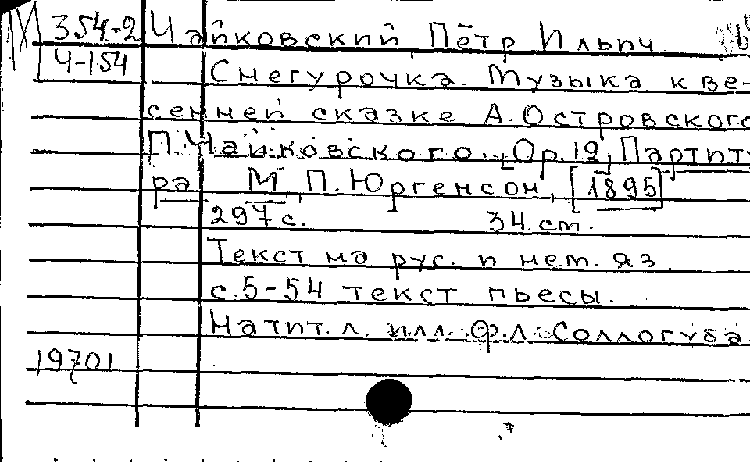 М 354-2 Чайковский, Пётр Ильич
Ч-154 Снегурочка. Музыка к ве-
сенней сказке А. Островского
П. Чайковского. Ор. 12, Партиту
ра М, П. Юргенсон, [1895]
297 с. 34 см.
Текст на рус. и нем. яз
с. 5-54 текст пьесы.
На тит. л. илл. Ф.Л. Соллогуба
19701